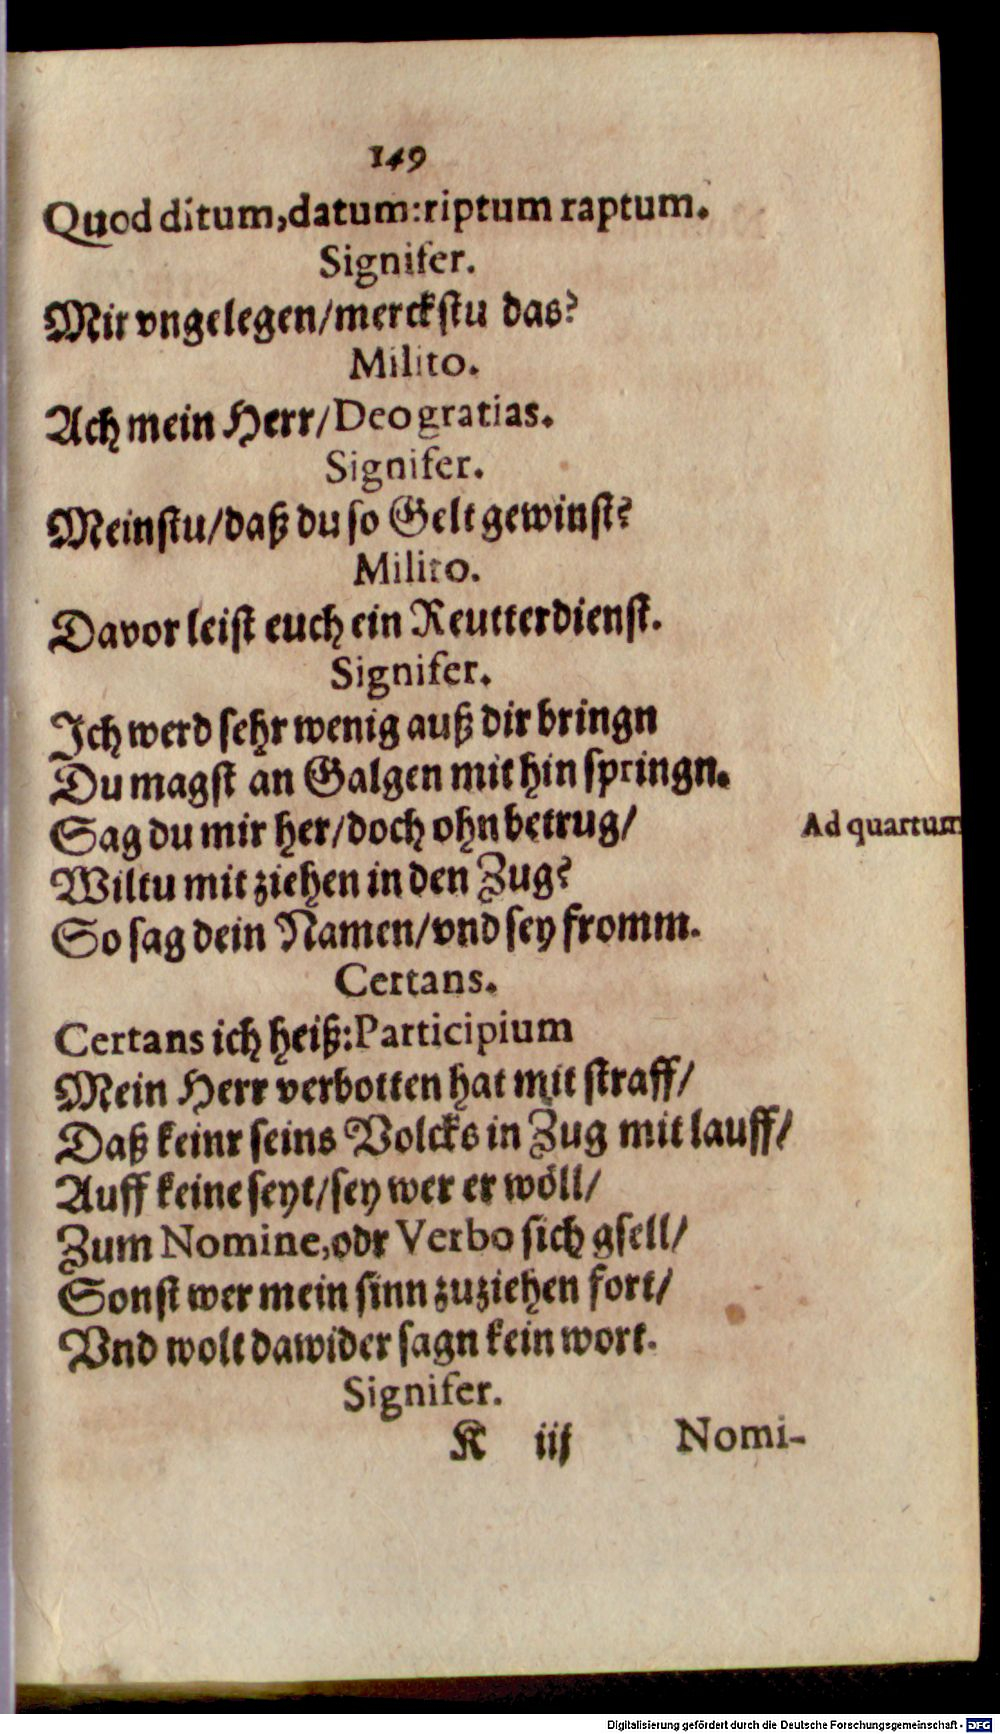 149
Quod ditum,datum:riptum raptum.
Signifer.
Mir vngelegen/merckstu das?
Milito.
Ach mein Herr/Deo gratias.
Signifer.
Meinstu/daß du so Gelt gewinst?
Milito.
Davor leist euch ein Reutterdienst.
Signifer.
Ich werd sehr wenig auß dir bringn
Du magst an Galgen mit hin springn.
Sag du mir her/doch ohn betrug/
Ad quartum
Wiltu mit ziehen in den Zug?
So sag dein Namen/vnd sey fromm.
Certans.
Certans ich heiß:Participium
Mein Herr verbotten hat mit straff/
Daß keinr seins Volcks in Zug mit lauff/
Auff keine seyt/sey wer er wöll/
Zum Nomine,odr Verbo sich gsell/
Sonst wer mein sinn zuziehen fort/
Vnd wolt dawider sagn kein wort.
Signifer.
K iij Nomi-
Digitalisierung gefördert durch die Deutsche Forschungsgemeinschaft - DFG